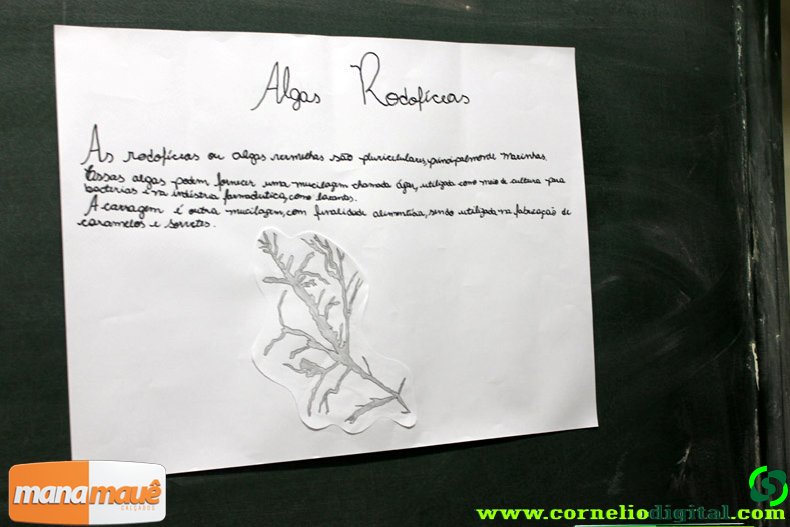 Algas Rodofíceas
As rodofíceas ou algas vermelhas são pluricelulares, principalmente marinhas.
Essas algas podem fornecer uma mucilagem chamada ágar, utilizada como meio de cultura para
bactérias e na indústria farmacêutica, como laxante.
A carragem é outra mucilagem, com finalidade alimentícia, sendo utilizada na fabricação de
caramelos e sorvetes.
manamauê
CALÇADOS
www.corneliodigital.com